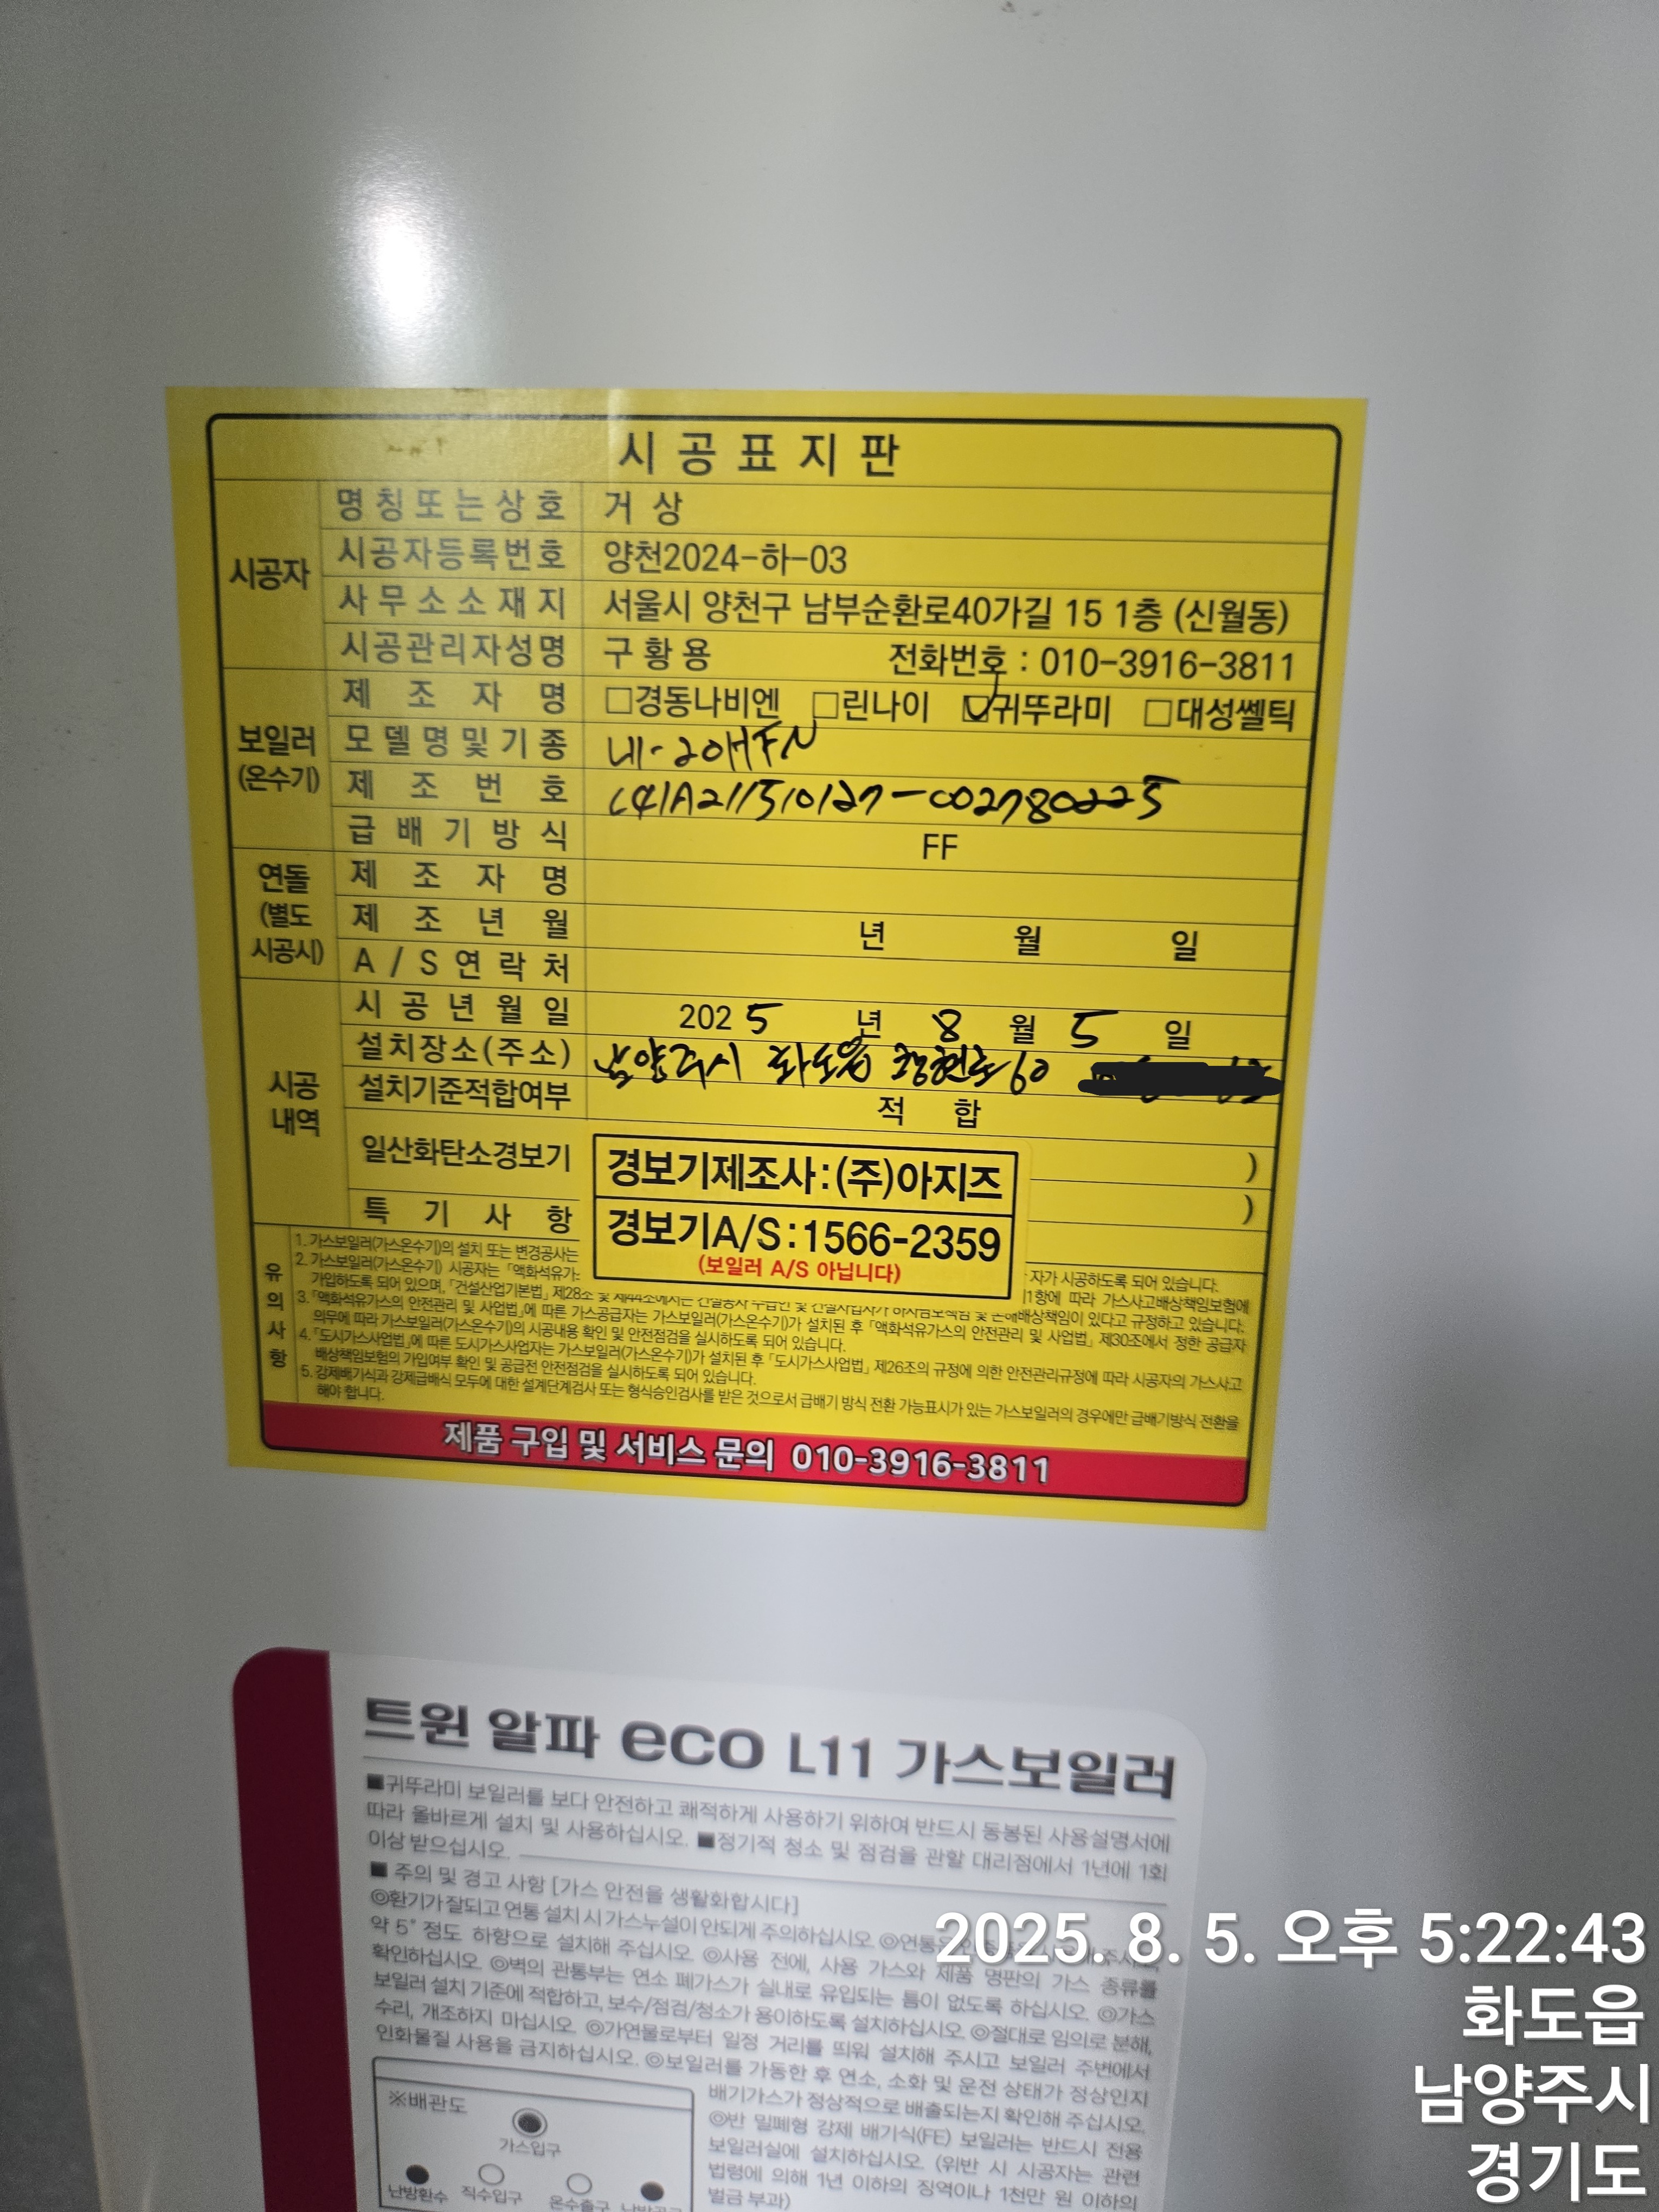 시공표지판
시공자
명칭또는상호 거 상
시공자등록번호 양천2024-하-03
사무소소재지 서울시 양천구 남부순환로40가길 15 1층 (신월동)
시공관리자성명 구 황 용 전화번호 : 010-3916-3811
보일러
(온수기)
제조자명 □경동나비엔 □린나이 ☑귀뚜라미 □대성쎌틱
모델명및기종 20HFN
제조번호
급배기방식 FF
연돌
(별도
시공시)
제조자명
제조년월 년 월 일
A/S연락처
시공
내역
시공년월일 2025 년 8 월 5 일
설치장소(주소) 남양주시 화도읍 60
설치기준적합여부 적 합
일산화탄소경보기 )
경보기제조사:(주)아지즈
특기사항 )
경보기A/S:1566-2359
(보일러 A/S 아닙니다)
유의사항
1. 가스보일러(가스온수기)의 설치 또는 변경공사는 자가 시공하도록 되어 있습니다.
2. 가스보일러(가스온수기) 시공자는 「액화석유가 1항에 따라 가스사고배상책임보험에
가입하도록 되어 있으며, 「건설산업기본법」 제28조 및 제44조에서는 건설공사 수급인 및 건설사업자가 하자담보책임 및 손해배상책임이 있다고 규정하고 있습니다.
3. 「액화석유가스의 안전관리 및 사업법」에 따른 가스공급자는 가스보일러(가스온수기)가 설치된 후 「액화석유가스의 안전관리 및 사업법」 제30조에서 정한 공급자
의무에 따라 가스보일러(가스온수기)의 시공내용 확인 및 안전점검을 실시하도록 되어 있습니다.
4. 「도시가스사업법」에 따른 도시가스사업자는 가스보일러(가스온수기)가 설치된 후 「도시가스사업법」 제26조의 규정에 의한 안전관리규정에 따라 시공자의 가스사고
배상책임보험의 가입여부 확인 및 공급전 안전점검을 실시하도록 되어 있습니다.
5. 강제배기식과 강제급배식 모두에 대한 설계단계검사 또는 형식승인검사를 받은 것으로서 급배기 방식 전환 가능표시가 있는 가스보일러의 경우에만 급배기방식 전환을
해야 합니다.
제품 구입 및 서비스 문의 010-3916-3811
트윈 알파 eco L11 가스보일러
■귀뚜라미 보일러를 보다 안전하고 쾌적하게 사용하기 위하여 반드시 동봉된 사용설명서에
따라 올바르게 설치 및 사용하십시오. ■정기적 청소 및 점검을 관할 대리점에서 1년에 1회
이상 받으십시오.
■ 주의 및 경고 사항 [가스 안전을 생활화합시다]
◎환기가 잘되고 연통 설치 시 가스누설이 안되게 주의하십시오. ◎연통은
약 5° 정도 하향으로 설치해 주십시오. ◎사용 전에, 사용 가스와 제품 명판의 가스 종류를
확인하십시오. ◎벽의 관통부는 연소 폐가스가 실내로 유입되는 틈이 없도록 하십시오. ◎가스
보일러 설치 기준에 적합하고, 보수/점검/청소가 용이하도록 설치하십시오. ◎절대로 임의로 분해,
수리, 개조하지 마십시오. ◎가연물로부터 일정 거리를 띄워 설치해 주시고 보일러 주변에서
인화물질 사용을 금지하십시오. ◎보일러를 가동한 후 연소, 소화 및 운전 상태가 정상인지
배기가스가 정상적으로 배출되는지 확인해 주십시오.
◎반 밀폐형 강제 배기식(FE) 보일러는 반드시 전용
보일러실에 설치하십시오. (위반 시 시공자는 관련
법령에 의해 1년 이하의 징역이나 1천만 원 이하의
벌금 부과)
※배관도
가스입구
난방환수 직수입구 온수출구 난방공급
2025. 8. 5. 오후 5:22:43
화도읍
남양주시
경기도